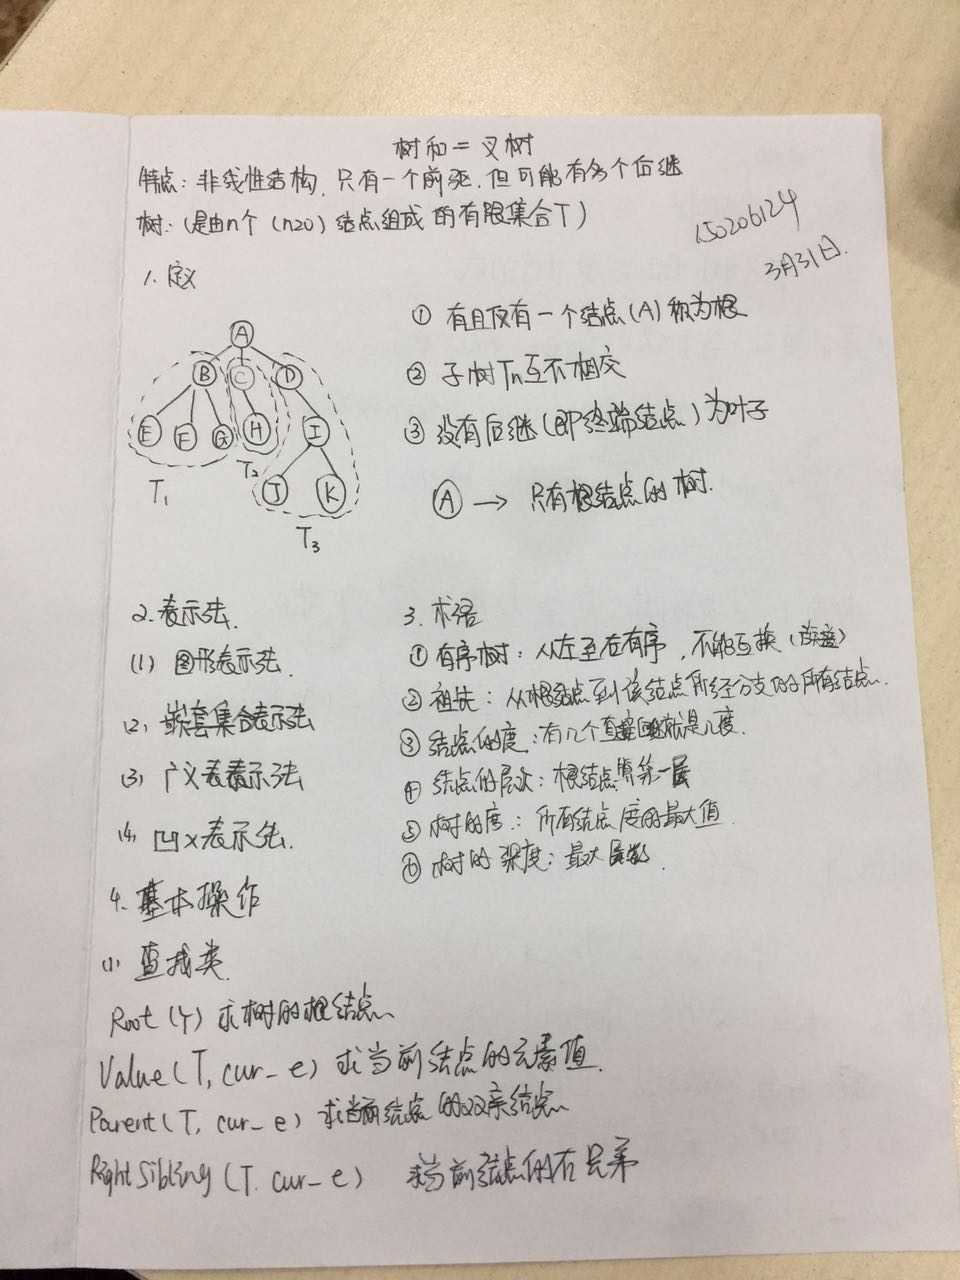 树和二叉树
特点：非线性结构，只有一个前驱，但可能有多个后继
树：(是由n个 (n≥0) 结点组成的有限集合T)
150206124
3月31日.
1. 定义
① 有且仅有一个结点(A)称为根
② 子树Tn互不相交
③ 没有后继(即终端结点)为叶子
A → 只有根结点的树.
A
B C D
E F G H I
J K
T1 T2 T3
2. 表示法.
(1) 图形表示法.
(2) 嵌套集合表示法
(3) 广义表表示法
(4) 凹入表示法.
3. 术语
① 有序树：从左至右有序，不能互换(族谱)
② 祖先：从根结点到该结点所经分支的所有结点.
③ 结点的度：有几个直接后继就是几度.
④ 结点的层次：根结点算第一层
⑤ 树的度：所有结点度的最大值.
⑥ 树的深度：最大层数.
4. 基本操作
(1) 查找类.
Root (T) 求树的根结点
Value (T, cur_e) 求当前结点的元素值.
Parent (T, cur_e) 求当前结点的双亲结点
RightSibling (T. cur_e) 求当前结点的右兄弟